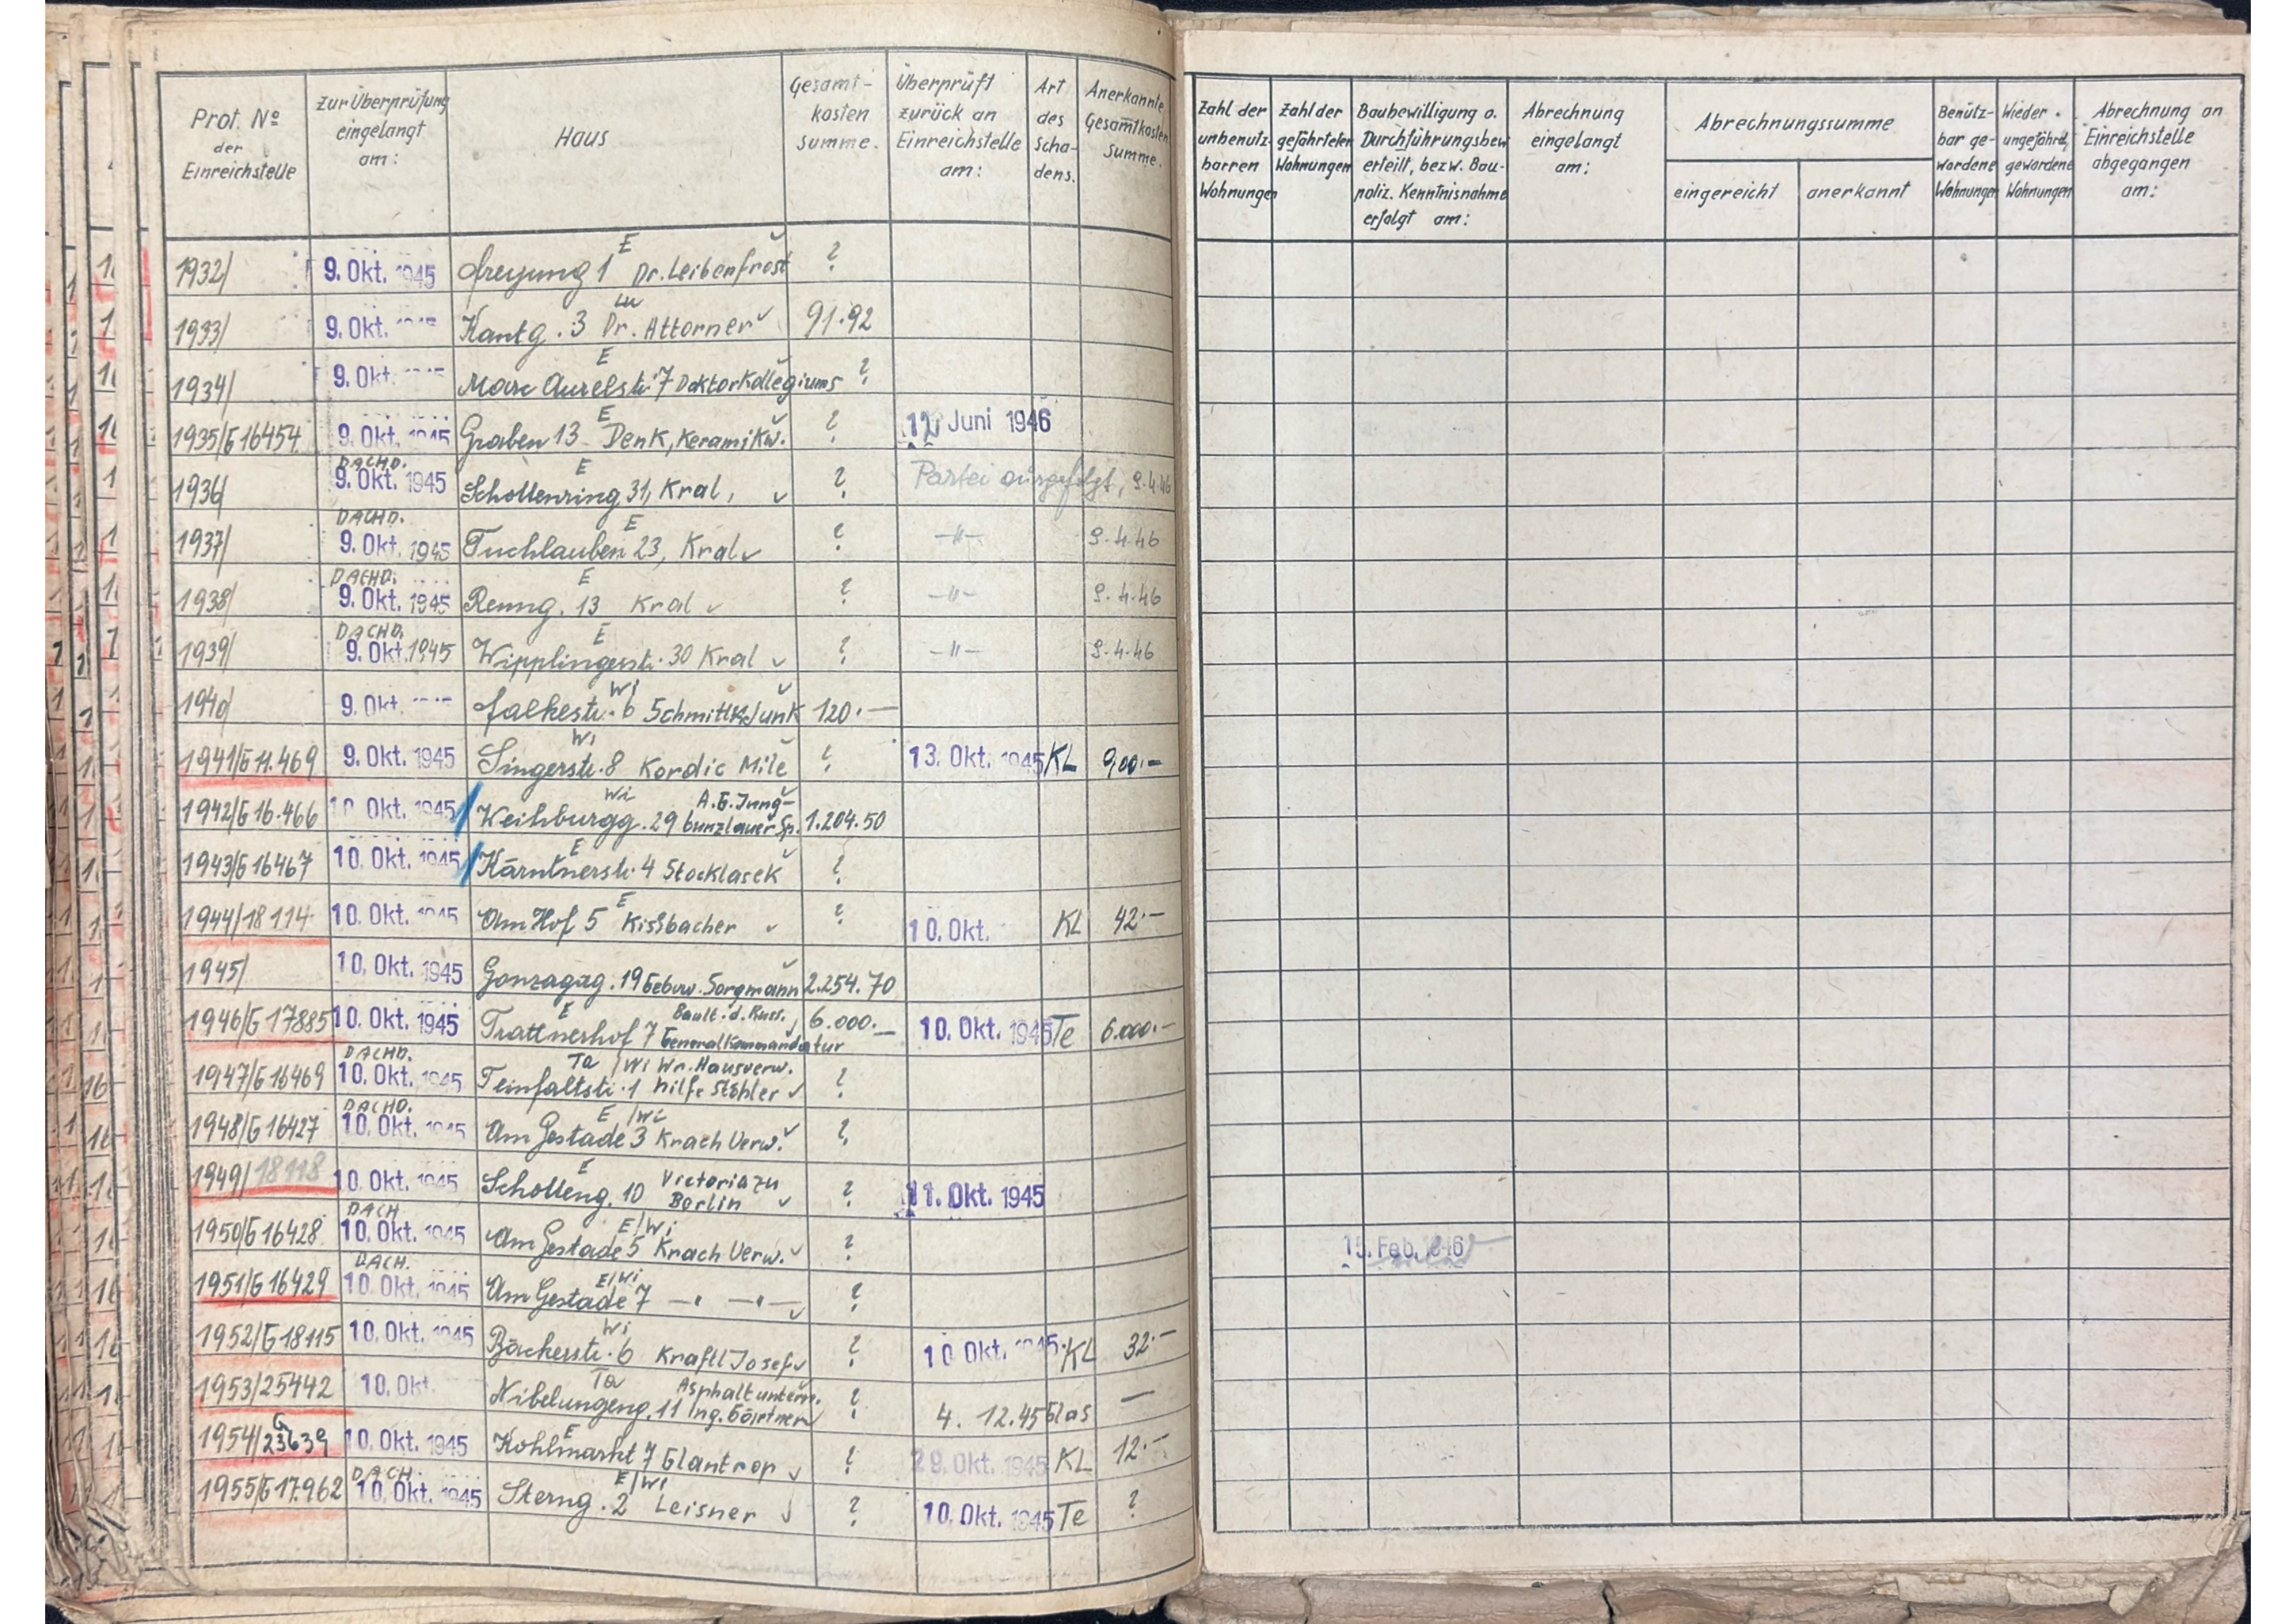 Prot. Nº der Einreichstelle
zur Überprüfung eingelangt am:
Haus
Gesamt-kosten summe.
Überprüft zurück an Einreichstelle am:
Art des Scha-dens.
Anerkannte Gesamtkosten Summe.
Zahl der unbenutz-barren Wohnungen
Zahl der gefährteten Wohnungen
Baubewilligung o. Durchführungsbew erteilt, bezw. Bau-poliz. Kenntnisnahme erfolgt am:
Abrechnung eingelangt am:
Abrechnungssumme
eingereicht
anerkannt
Benütz-bar ge-wordene Wohnungen
Wieder. ungefährd, gewordene Wohnungen
Abrechnung an Einreichstelle abgegangen am:
1932/ 9. Okt. 1945 Freyung 1 E Dr. Leibenfrost ?
1933/ 9. Okt. Kantg. 3 Dr. Attorner 91.92
1934/ 9. Okt. Marc Aurelstr. 7 E Doktorkollegiums ?
1935/G16454 9. Okt. 1945 Graben 13 E Denk, Keramikw. ? 12 Juni 1946
1936/ DACHD. 9. Okt. 1945 Schottenring 31, E Kral, ? Partei ausgefolgt, 9.4.46
1937/ DACHD. 9. Okt. 1945 Tuchlauben 23, E Kral ? -"- 9.4.46
1938/ DACHD. 9. Okt. 1945 Renng. 13 E Kral ? -"- 9.4.46
1939/ DACHD. 9. Okt. 1945 Wipplingerstr. 30 E Kral ? -"- 9.4.46
1940/ 9. Okt. Falkestr. 6 Wi Schmitt 120.—
1941/G 11.469 9. Okt. 1945 Singerstr. 8 Wi Kordic Mile ? 13. Okt. 1945 KL 900.-
1942/G 16.466 10. Okt. 1945 Weihburgg. 29 Wi A.G. Jung-bunzlauer Sp. 1.204.50
1943/G16467 10. Okt. 1945 Kärntnerstr. 4 E Stocklasek ?
1944/18114 10. Okt. 1945 Am Hof 5 E Kissbacher ? 10. Okt. KL 42.—
1945/ 10. Okt. 1945 Gonzagag. 19 Gebuv. Sorgmann 2.254.70
1946/G 17885 10. Okt. 1945 Trattnerhof 7 E Bault. d. Russ. Generalkommandatur 6.000.— 10. Okt. 1945 Te 6.000.—
1947/G16469 DACHD. 10. Okt. 1945 Teinfaltstr. 1 Ta/Wi Wr. Hausverw. hilfe Stöhler ?
1948/G16427 DACHD. 10. Okt. 1945 Am Gestade 3 E/Wi Krach Verw. ?
1949/18118 10. Okt. 1945 Schotteng. 10 E Victoria zu Berlin ? 11. Okt. 1945
1950/G16428 DACH 10. Okt. 1945 Am Gestade 5 E/Wi Krach Verw. ? 15. Feb. 1946
1951/G16429 DACH. 10. Okt. 1945 Am Gestade 7 E/Wi —"— —"— ?
1952/G18115 10. Okt. 1945 Bäckerstr. 6 Wi Kraftl Josef ? 10 Okt. 1945 KL 32.—
1953/25442 10. Okt. Nibelungeng. 11 Ta Asphaltuntern. Ing. Gärtner ? 4. 12.45 Glas —
1954/G 23639 10. Okt. 1945 Kohlmarkt 7 E Glantrop ? 29. Okt. 1945 KL 12.—
1955/G17.962 DACH. 10. Okt. 1945 Sterng. 2 E/Wi Leisner ? 10. Okt. 1945 Te ?